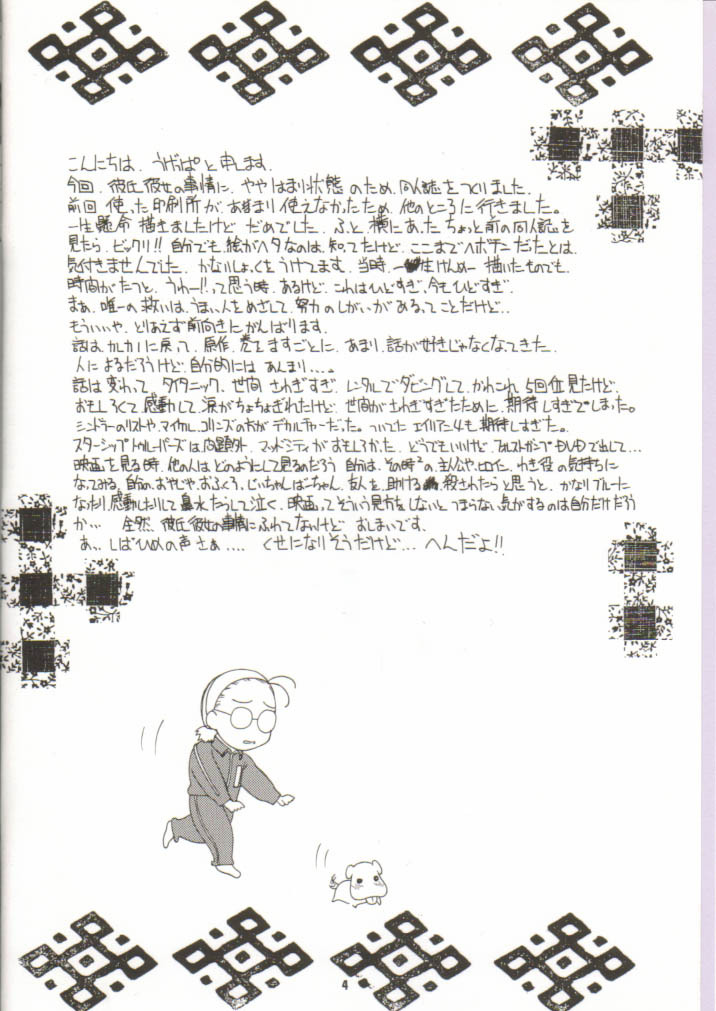 こんにちは、うげっぱと申します。
今回、彼氏彼女の事情に、ややはまり状態のため、同人誌をつくりました。
前回使った印刷所が、あまり使えなかったため、他のところに行きました。
一生懸命描きましたけど だめでした。ふと、横にあったちょっと前の同人誌を
見たら、ビックリ!! 自分でも、絵がヘタなのは、知ってたけど、ここまでヘボチンだったとは、
気付きませんでした、かないしょっくをうけてます。当時、一生けんめー描いたものでも、
時間がたつと、うわー!!って思う時、あるけど、これはひどすぎ、今もひどすぎ。
まぁ、唯一の救いは、うまい人をめざして、努力のしがいがあるってことだけど…
もういいや、とりあえず前向きにがんばります。
話は、カレカノに戻って、原作、巻をますごとに、あまり、話が好きじゃなくなってきた、
人によるだろうけど、自分的には あんまり…。
話は変わって、タイタニック、世間さわぎすぎ、レンタルでダビングして、かれこれ、5回位見たけど、
おもしろくて感動して、涙がちょちょぎれたけど、世間がさわぎすぎたために、期待しすぎてしまった。
シンドラーのリストや、マイケル・コリンズの方がデカルチャーだった。ついでにエイリアン4も、期待しすぎた。
スターシップトゥルーパーズは問題外、マッドシティがおもしろかった、どうでもいいけど、フォレストガンプもDVDで出して…
映画を見る時、他の人は、どのようにして見るのだろう 自分は、その時々の、主人公や、ヒロイン、わき役の気持ちに
なってみる、自分のおやじや、おふくろ、じいちゃん、ばーちゃん、友人を、助ける、殺されたらと思うと、かなりブルーに
なったり、感動したりして 鼻水たらして泣く、映画ってそういう見方をしないと、つまらない気がするのは自分だけだろう
か… 全然、彼氏彼女の事情にふれてないけど おしまいです。
あっ、しばひめの声さぁ… くせになりそうだけど… へんだよ!!
4